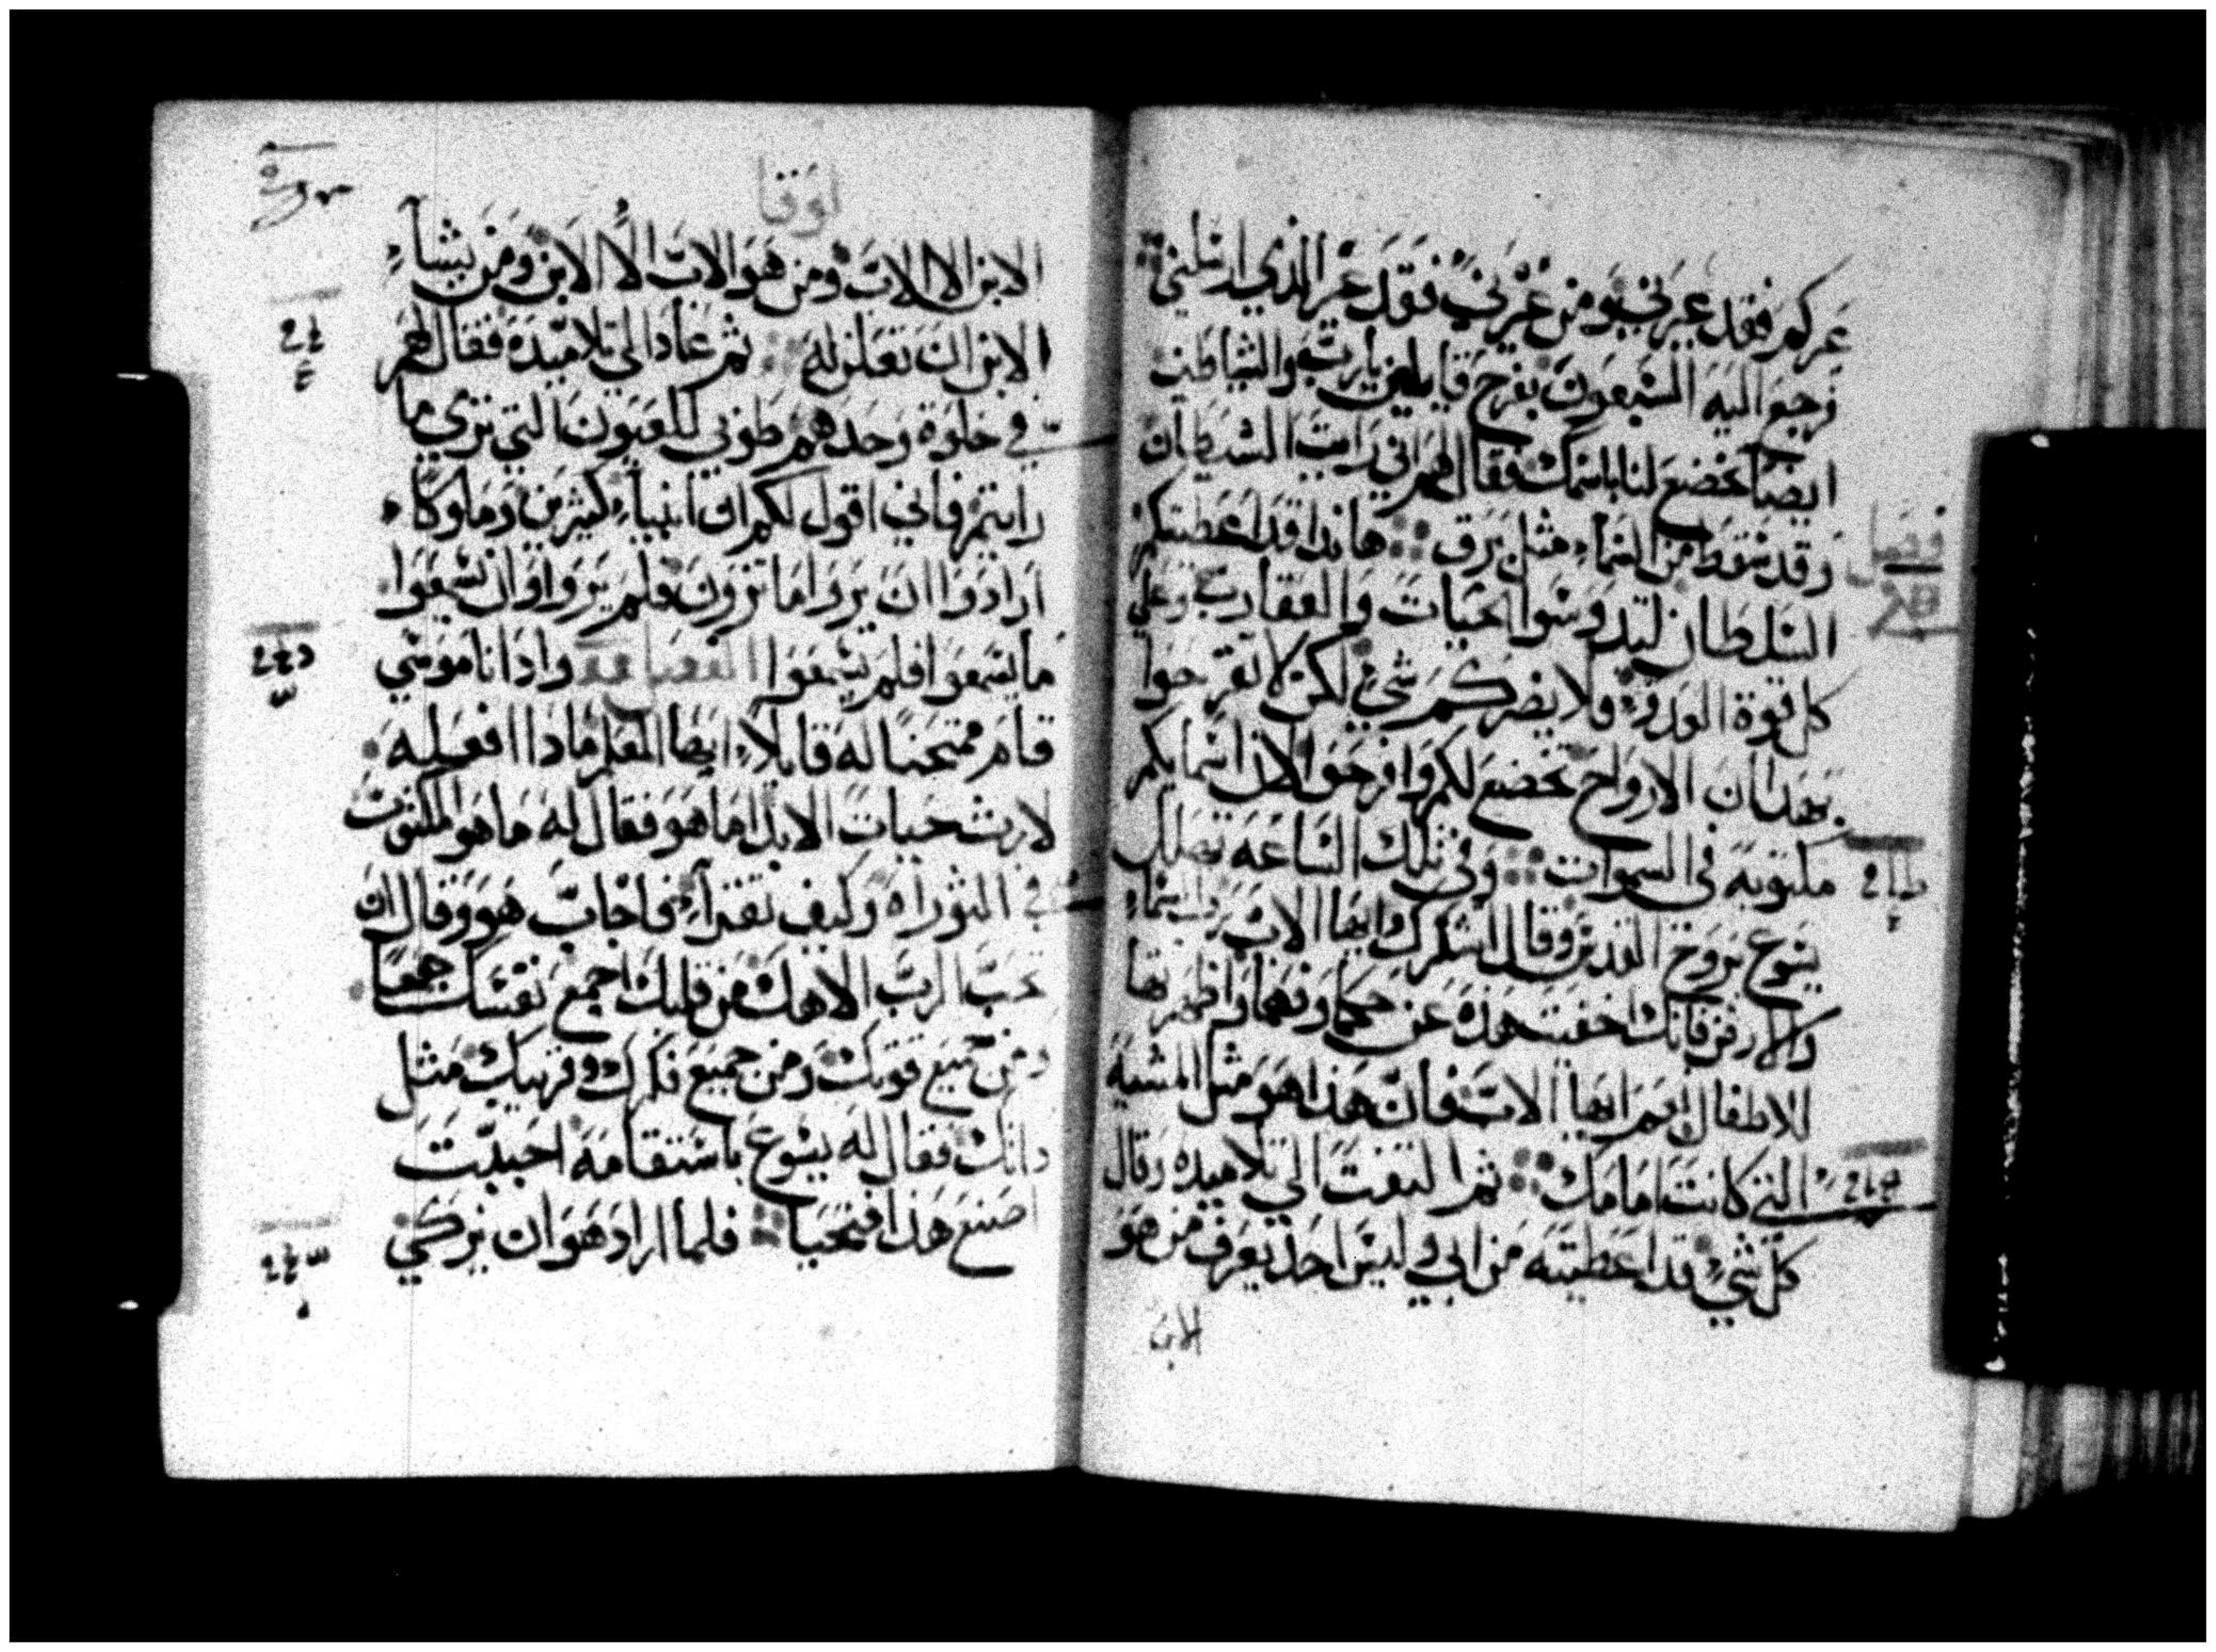 غركم فقد غيرني ومن غرني فقد غر الذي ارسلني
فرجع اليه السبعون بفرح قايلين يارب والشياطين
ايضا تخضع لنا باسمك فقال لهم اني رايت الشيطان
وقد سقط من السماء مثل برق هانذا قد اعطيتكم
السلطان لتدوسوا الحيات والعقارب وعلي
كل قوة العدو ولا يضركم شي لكن لا تفرحوا
بهذا ان الارواح تخضع لكم وافرحوا لان اسمايكم
مكتوبه في السموات وفي تلك الساعه تهلل
يسوع بروح القدس وقال اشكرك ايها الاب رب السماء
والارض فانك اخفيت هذه عن حكما وفهما واظهرتها
للاطفال نعم ايها الاب فان هذا هو مثل المشيه
التي كانت امامك ثم التفت الي تلاميده وقال
كل شي قد اعطيته من ابي وليس احد يعرف من هو
الابن
لوقا
الابن الا الاب ومن هو الاب الا الابن ومن يشاء
الابن ان تعلن له ثم عاد الي تلاميده فقال لهم
في خلوة وحدهم طوبي للعيون التي تري ما
رايتم فاني اقول لكم ان انبياء كثيرين وملوكا
ارادوا ان يروا ما ترون فلم يروا وان يسمعوا
ما يسمعوا فلم يسمعوا الفصل واذا ناموسي
قام ممتحنا له قايلا ايها المعلم ماذا افعله
لارث حيات الابد اما هو فقال له ما هو المكتوب
في التوراه وكيف تقرا فاجاب هو وقال ان
تحب الرب الاهك من قلبك اجمع نفسك جمعا
ومن جميع قوتك ومن جميع فكرك وقريبك مثل
داتك فقال له يسوع باستقامه اجبت
اصنع هذا فتحيا فلما اراد هو ان يزكي